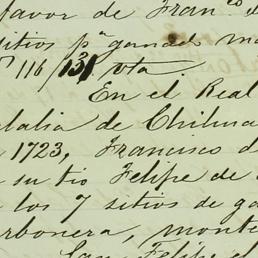 favor de Fran.co d
sitios p.a ganad. ma
116/131 vta.
En el Real
talia de Chihua
1723, Francisco d
su tio Felipe de
los 7 sitios de ga
rbonera, monte
San Felipe el